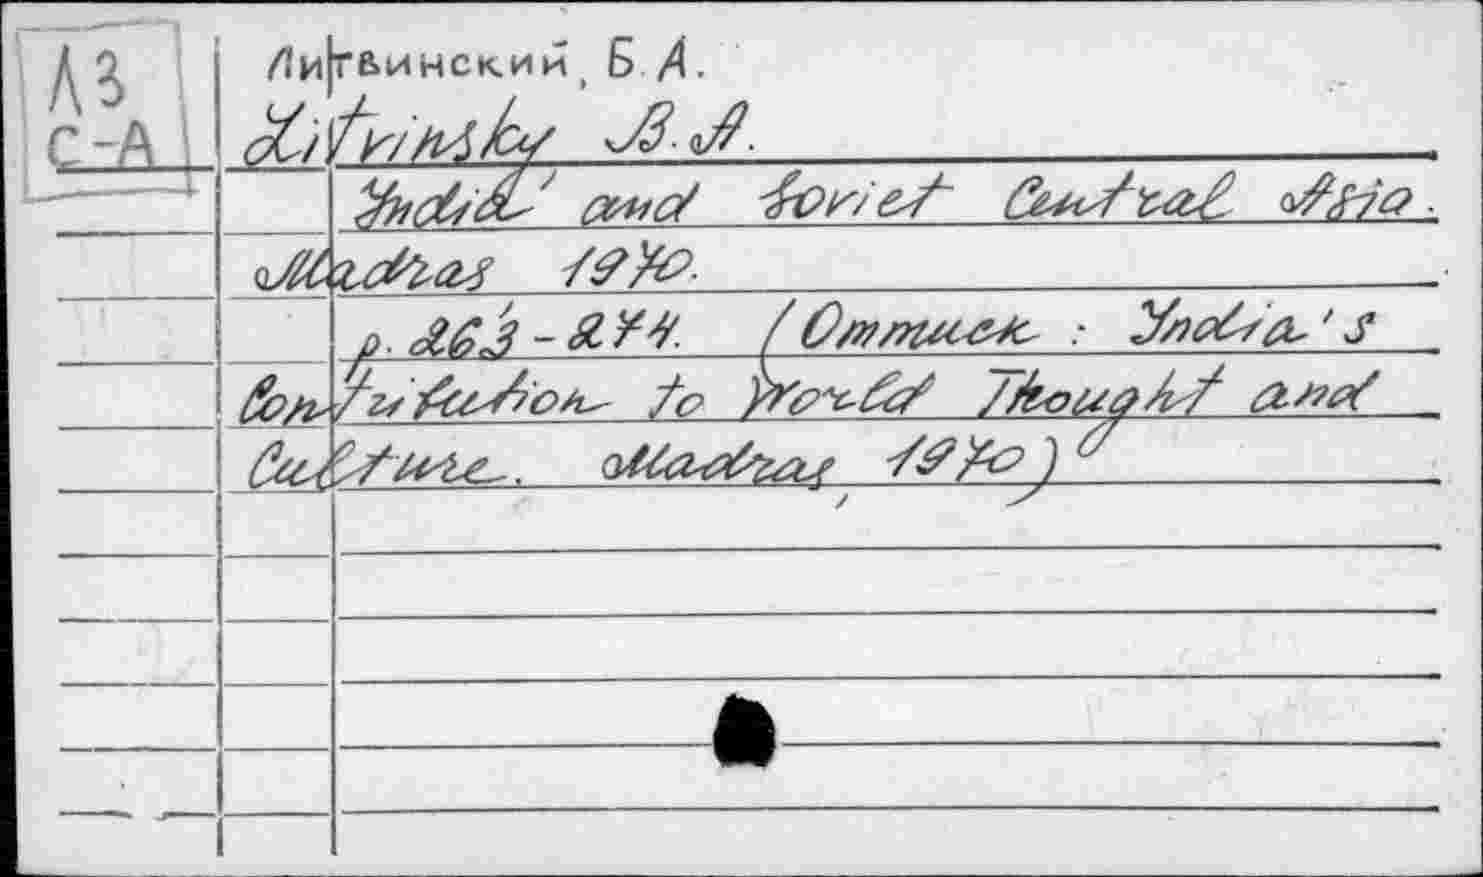 ЛЗ
С-А
Литвинский, Б.А.
Litvinsky B.A.
India and Soviet Central Asia.
Madras 1970.
p. 263-274. (Оттиск : India's
Contribution to World Thought and
Culture. Madras, 1970)